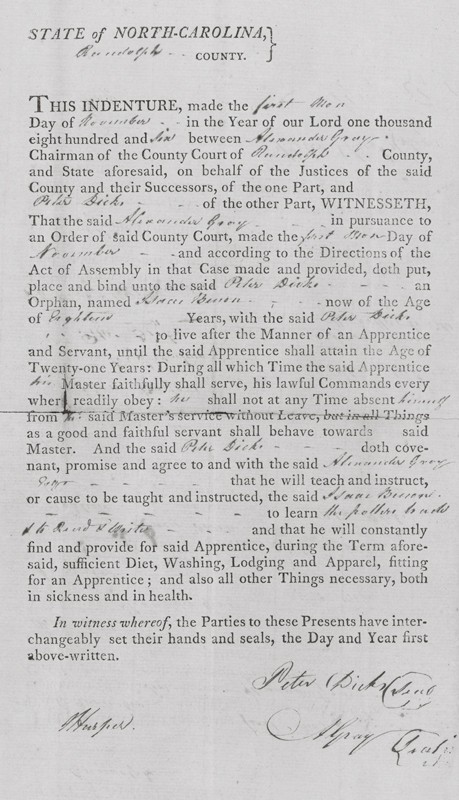 STATE of NORTH-CAROLINA,
Randolph - - COUNTY.
THIS INDENTURE, made the first Mon
Day of November - - in the Year of our Lord one thousand
eight hundred and six between Alexander Gray
Chairman of the County Court of Randolph - - County,
and State aforesaid, on behalf of the Justices of the said
County and their Successors, of the one Part, and
Peter Dicks - - of the other Part, WITNESSETH,
That the said Alexander Gray - - in pursuance to
an Order of said County Court, made the first Mon Day of
November - - and according to the Directions of the
Act of Assembly in that Case made and provided, doth put,
place and bind unto the said Peter Dicks - - - - an
Orphan, named Isaac - - now of the Age
of Eighteen Years, with the said Peter Dicks
- - to live after the Manner of an Apprentice
and Servant, until the said Apprentice shall attain the Age of
Twenty-one Years: During all which Time the said Apprentice
his Master faithfully shall serve, his lawful Commands every
where readily obey: he shall not at any Time absent himself
from his said Master's service without Leave, but in all Things
as a good and faithful servant shall behave towards said
Master. And the said Peter Dicks - - doth cove-
nant, promise and agree to and with the said Alexander Gray
Esqr - - - - - that he will teach and instruct,
or cause to be taught and instructed, the said Isaac
- - - - to learn the potters trade
& to Read & Write - - - and that he will constantly
find and provide for said Apprentice, during the Term afore-
said, sufficient Diet, Washing, Lodging and Apparel, fitting
for an Apprentice; and also all other Things necessary, both
in sickness and in health.
In witness whereof, the Parties to these Presents have inter-
changeably set their hands and seals, the Day and Year first
above-written.
Peter Dicks (Seal)
J Harper. A Gray (Seal)